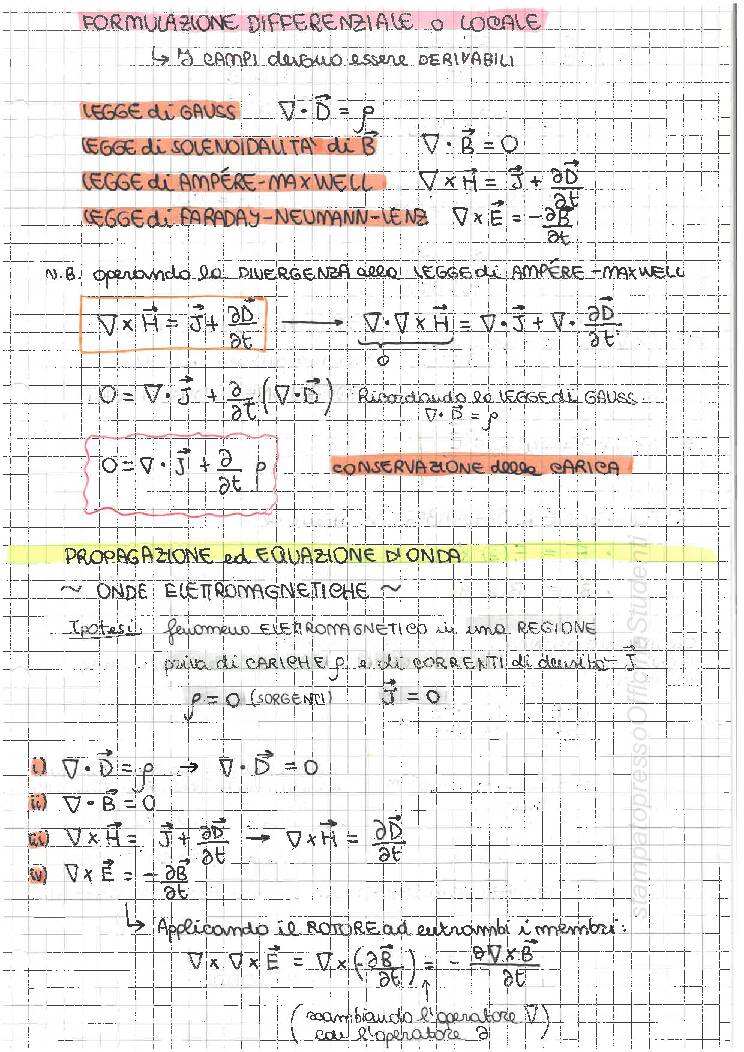 FORMULAZIONE DIFFERENZIALE o LOCALE
↳ I CAMPI devono essere DERIVABILI
LEGGE di GAUSS ∇·D⃗ = ρ
LEGGE di SOLENOIDALITA' di B⃗ ∇·B⃗ = 0
LEGGE di AMPÉRE-MAXWELL ∇×H⃗ = J⃗ + ∂D⃗/∂t
LEGGE di FARADAY-NEUMANN-LENZ ∇×E⃗ = -∂B⃗/∂t
N.B. operando la DIVERGENZA alla LEGGE di AMPÉRE-MAXWELL
∇×H⃗ = J⃗ + ∂D⃗/∂t → ∇·∇×H⃗ = ∇·J⃗ + ∇·∂D⃗/∂t
0
0 = ∇·J⃗ + ∂/∂t (∇·D⃗) Ricordando la LEGGE di GAUSS
∇·D⃗ = ρ
0 = ∇·J⃗ + ∂/∂t ρ CONSERVAZIONE della CARICA
PROPAGAZIONE ed EQUAZIONE D'ONDA
~ ONDE ELETTROMAGNETICHE ~
Ipotesi: fenomeno ELETTROMAGNETICO in una REGIONE
priva di CARICHE ρ e di CORRENTI di densità J⃗
ρ = 0 (SORGENTI) J⃗ = 0
i) ∇·D⃗ = ρ → ∇·D⃗ = 0
ii) ∇·B⃗ = 0
iii) ∇×H⃗ = J⃗ + ∂D⃗/∂t → ∇×H⃗ = ∂D⃗/∂t
iv) ∇×E⃗ = -∂B⃗/∂t
↳ Applicando il ROTORE ad entrambi i membri:
∇×∇×E⃗ = ∇×(-∂B⃗/∂t) = -∂∇×B⃗/∂t
↑
(scambiando l'operatore ∇)
con l'operatore ∂
stampatopressoOfficinaStudenti